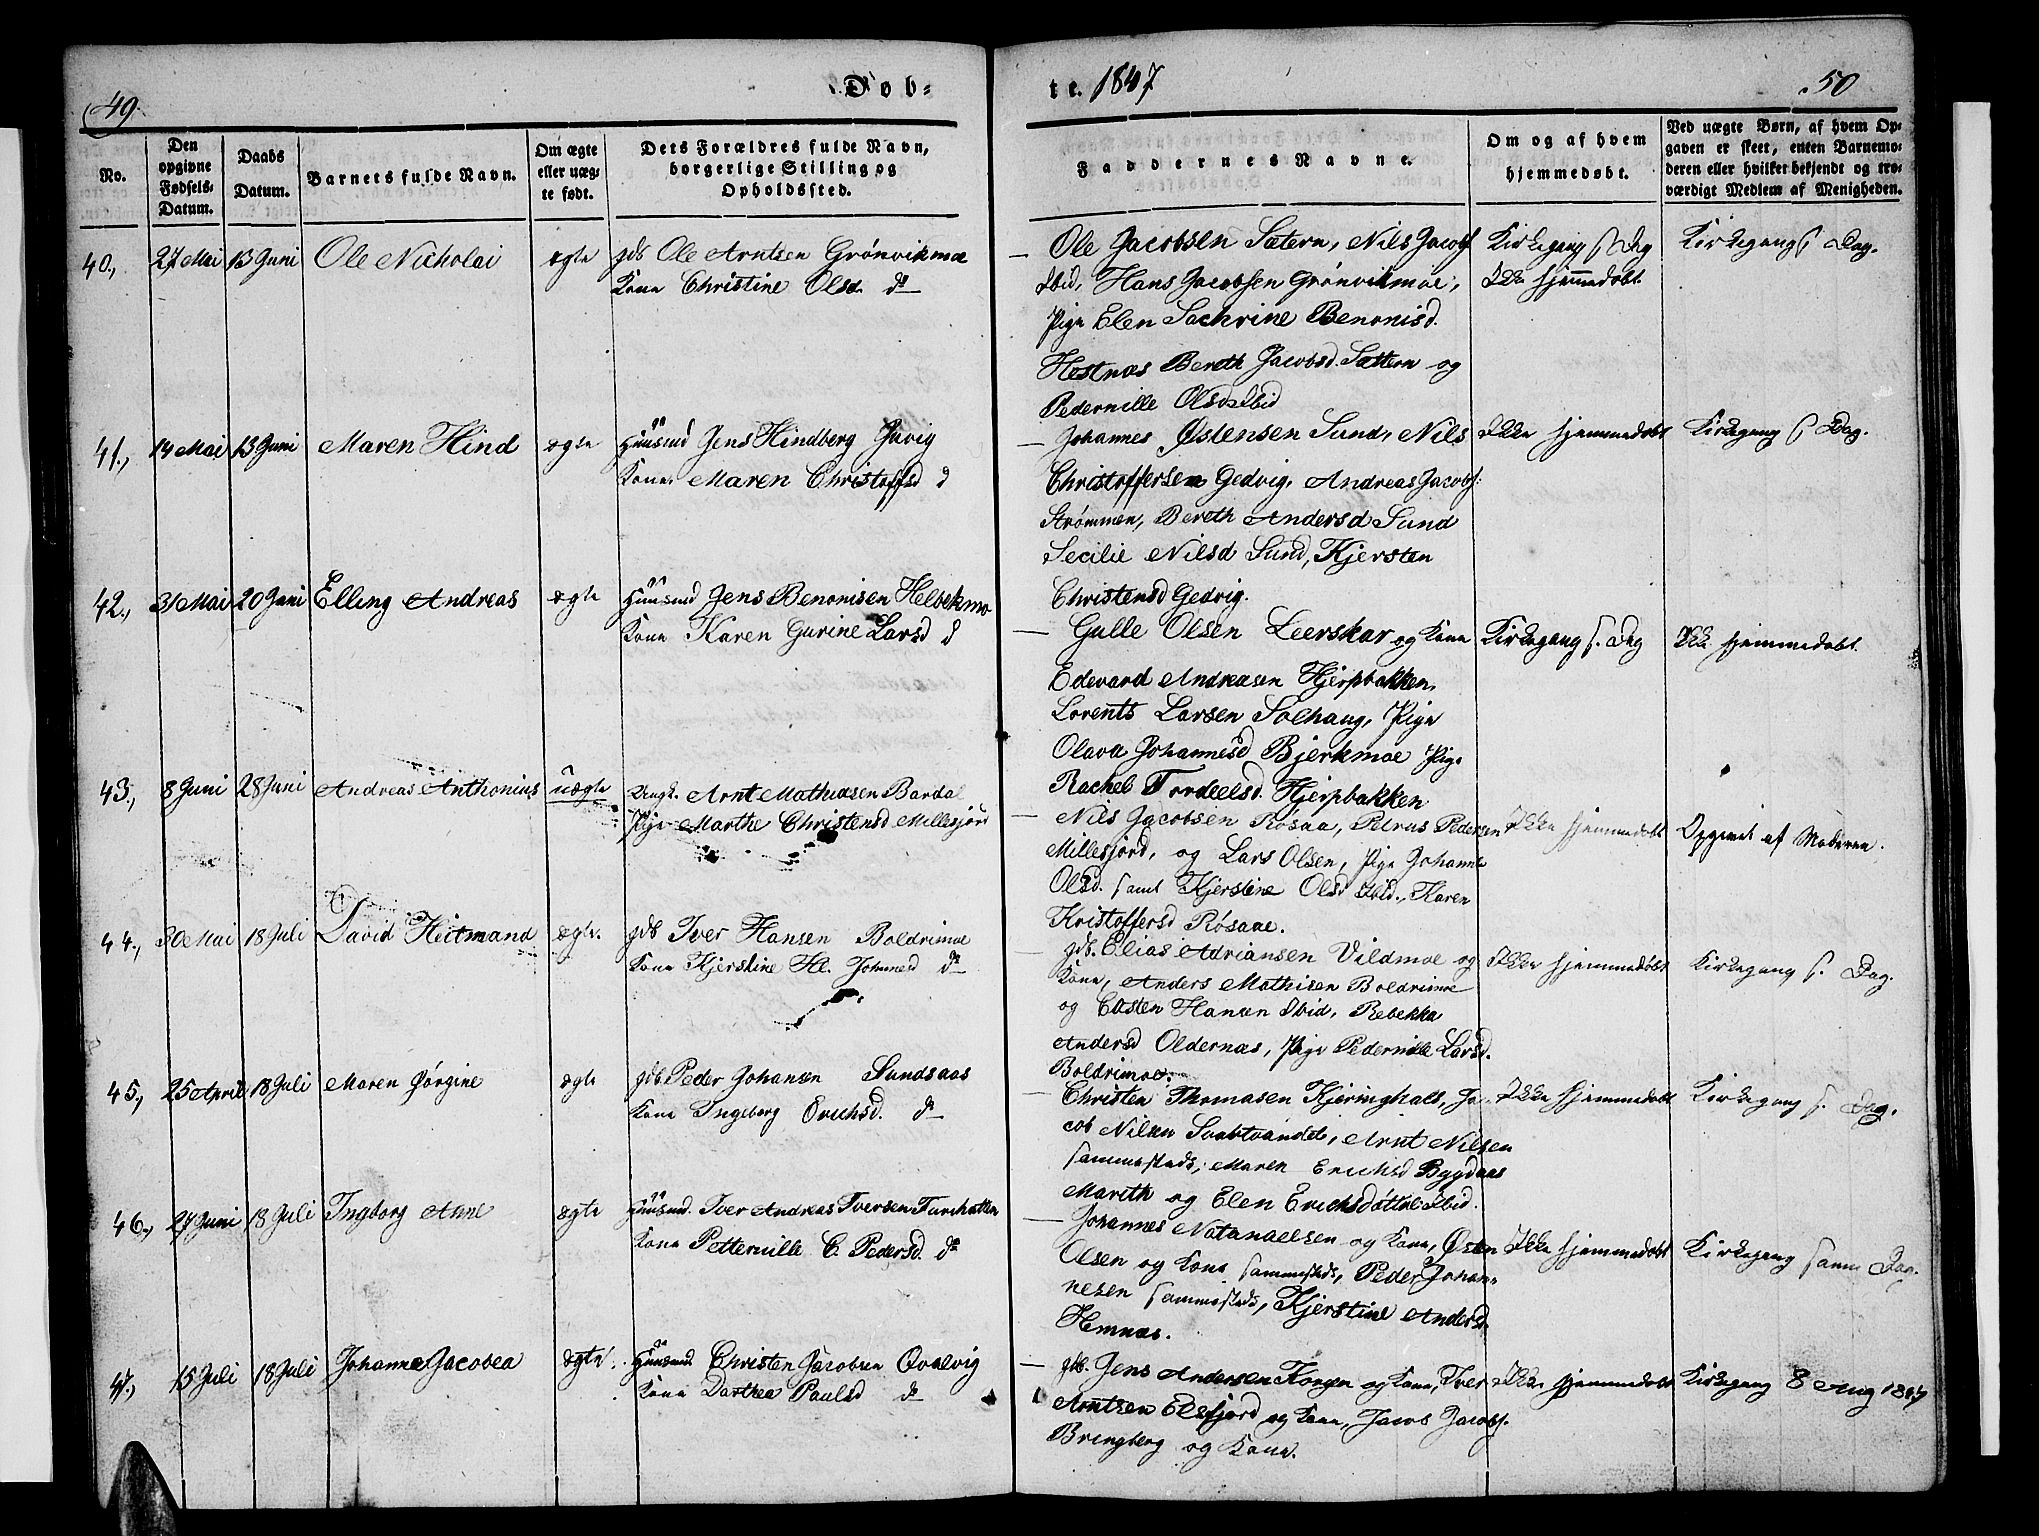 49.
Døb-
No.
Den opgivne Fødsels-Datum.
Daabs Datum.
Barnets fulde Navn.
Om ægte eller uæg-te født.
Dets Forældres fulde Navn, borgerlige Stilling og Opholdssted.
40., 27 Mai 13 Juni Ole Nicholai ægte gdb Ole Arntsen Grønvikmoe
Kone Christine Olsd. do
41., 14 Mai 13 Juni Maren Hind ægte Huusmd Jens Hindberg
Kone Maren Christoffsd d
42., 31 Mai 20 Juni Elling Andreas ægte Huusmd Jens Benonisen Helbekmo
Kone Karen Gurine Larsd d
43., 8 Juni 28 Juni Andreas Anthonius uægte Ungk. Arnt Mathiasen Bardal
Pige Marthe Christensd Millesjord
44., 30 Mai 18 Juli David Hitmand ægte. gdb Iver Hansen Boldrimoe
Kone Kjerstine H. do
45., 25 April 18 Juli Maren Jørgine ægte gdb Peder Johansen Sundsaas
Kone Ingeborg Erichsd. do
46., 27 Juni 18 Juli Ingborg Anne ægte Huusmd. Iver Andreas Iversen
Kone Petternille C. Pedersd. do
47., 15 Juli 18 Juli Johanne Jacobea ægte Huusmd Christen Jacobsen Qvalvig
Kone Dorthea Paulsd do
te. 1847
50
Faddernes Navne.
Om og af hvem hjemmedøbt.
Ved uægte Børn, af hvem Op-
gaven er skeet, enten Barnemo-
deren eller hvilket bekjendt og tro-
værdigt Medlem af Menigheden.
Ole Jacobsen Sætern, Nils Jacobs. Kirkegang s. Dag Kirkegang s. Dag.
Ibid, Hans Jacobsen Grønvikmoe, Ikke hjemmedøbt.
Pige Elen Sachrine Benonisd.
Hestnæs Bereth Jacobsd. Sættern og
Pedernille Olsd Ibid
Johannes Østensen Sund, Nils Ikke hjemmedøbt Kirkegang s. Dag.
Christoffersen Gedvig, Andreas Jacobs.
Strømmen, Bereth Andersd Sund
Secilie Nilsd Sund, Kjersten
Christensd Gedvig.
Gulle Olsen Leerskar og Kone Kirkegang s. Dag Ikke hjemmedøbt.
Edevard Andreasen Hjerpbakken,
Lorents Larsen Solhaug, Pige
Olava Johannesd Bjerkmoe Pige
Rachel Tordeelsd. Hjerpbakken
Nils Jacobsen Røsaa, Petrus Pedersen Ikke hjemmedøbt Opgivet af Moderen.
Millesjord, og Lars Olsen, Pige Johanne
Olsd. samt Kjerstine Olsd Ibid., Karen
Kristoffersd Røsaae.
gdb. Elias Adriansen Vildmoe og Ikke hjemmedøbt Kirkegang s. Dag.
Kone, Anders Mathisen Boldrimoe
og Hansen Ibid, Rebekka
Andersd Oldernæs, Pige Pedernille Larsd.
Boldrimoe.
Christen Thomasen Kjeringhals, Ja- Ikke hjemmedøbt Kirkegang s. Dag.
cob Nilsen Svabtvandet, Arnt Nilsen
sammesteds, Maren Erichsd Bygdaas
Marith og Elen Erichsdøttre Ibid.
Johannes Natanaelsen og Kone, Østen Ikke hjemmedøbt Kirkegang samme Dag.
Olsen og Kone sammesteds, Peder Johan-
nesen sammesteds, Kjerstine Andersd.
Hemnæs.
gdb. Jens Andersen Kongen og Kone, Iver Ikke hjemmedøbt Kirkegang 8 Aug 1847
Arntsen Elsfjord og Kone, Jacob Jacobs.
Bringberg og Kone.